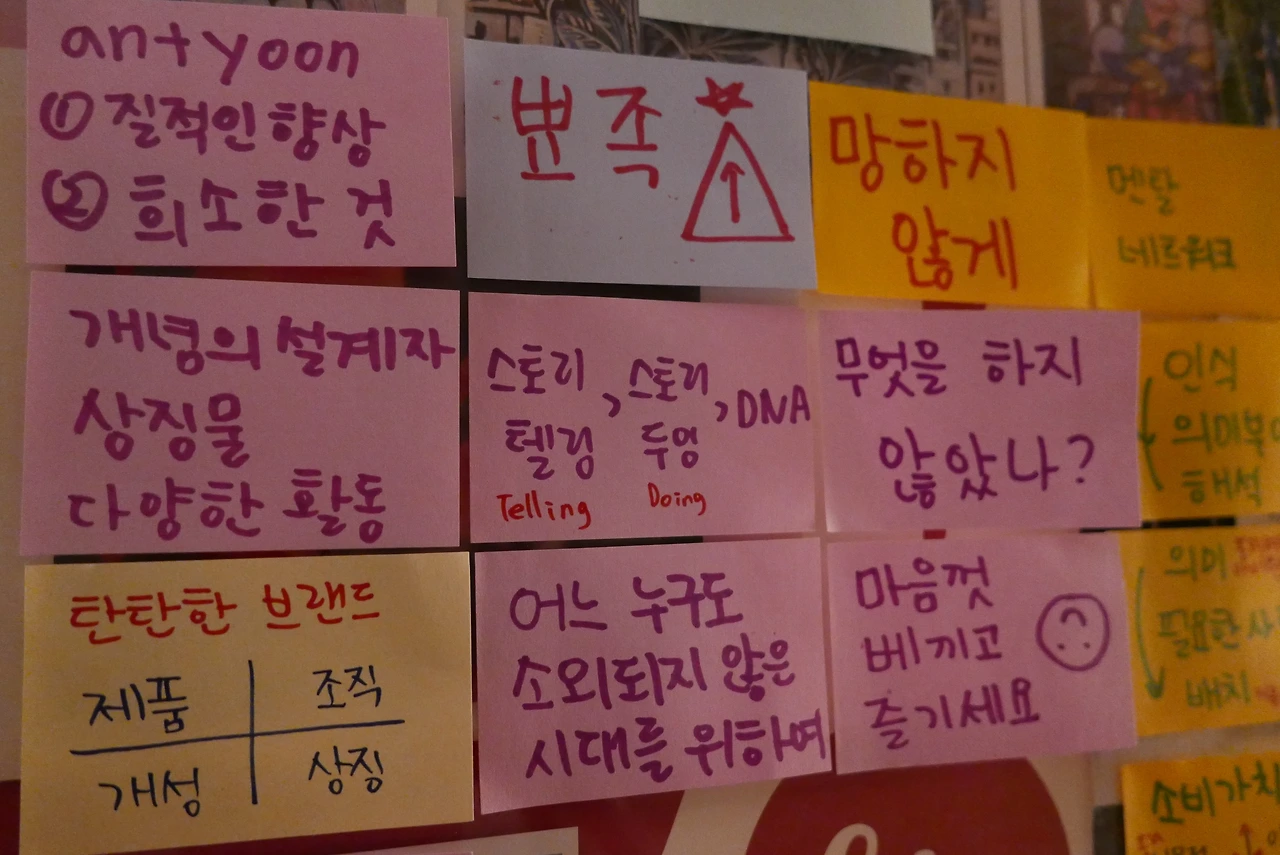 an+yoon
① 질적인 향상
② 희소한 것
뾰족
망하지
않게
멘탈
네트워크
개념의 설계자
상징물
다양한 활동
스토리 , 스토리 , DNA
텔링 두잉
Telling Doing
무엇을 하지
않았나?
인식
해석
탄탄한 브랜드
제품 조직
개성 상징
어느 누구도
소외되지 않은
시대를 위하여
마음껏
베끼고
즐기세요
의미
필요한
배치
소비가치